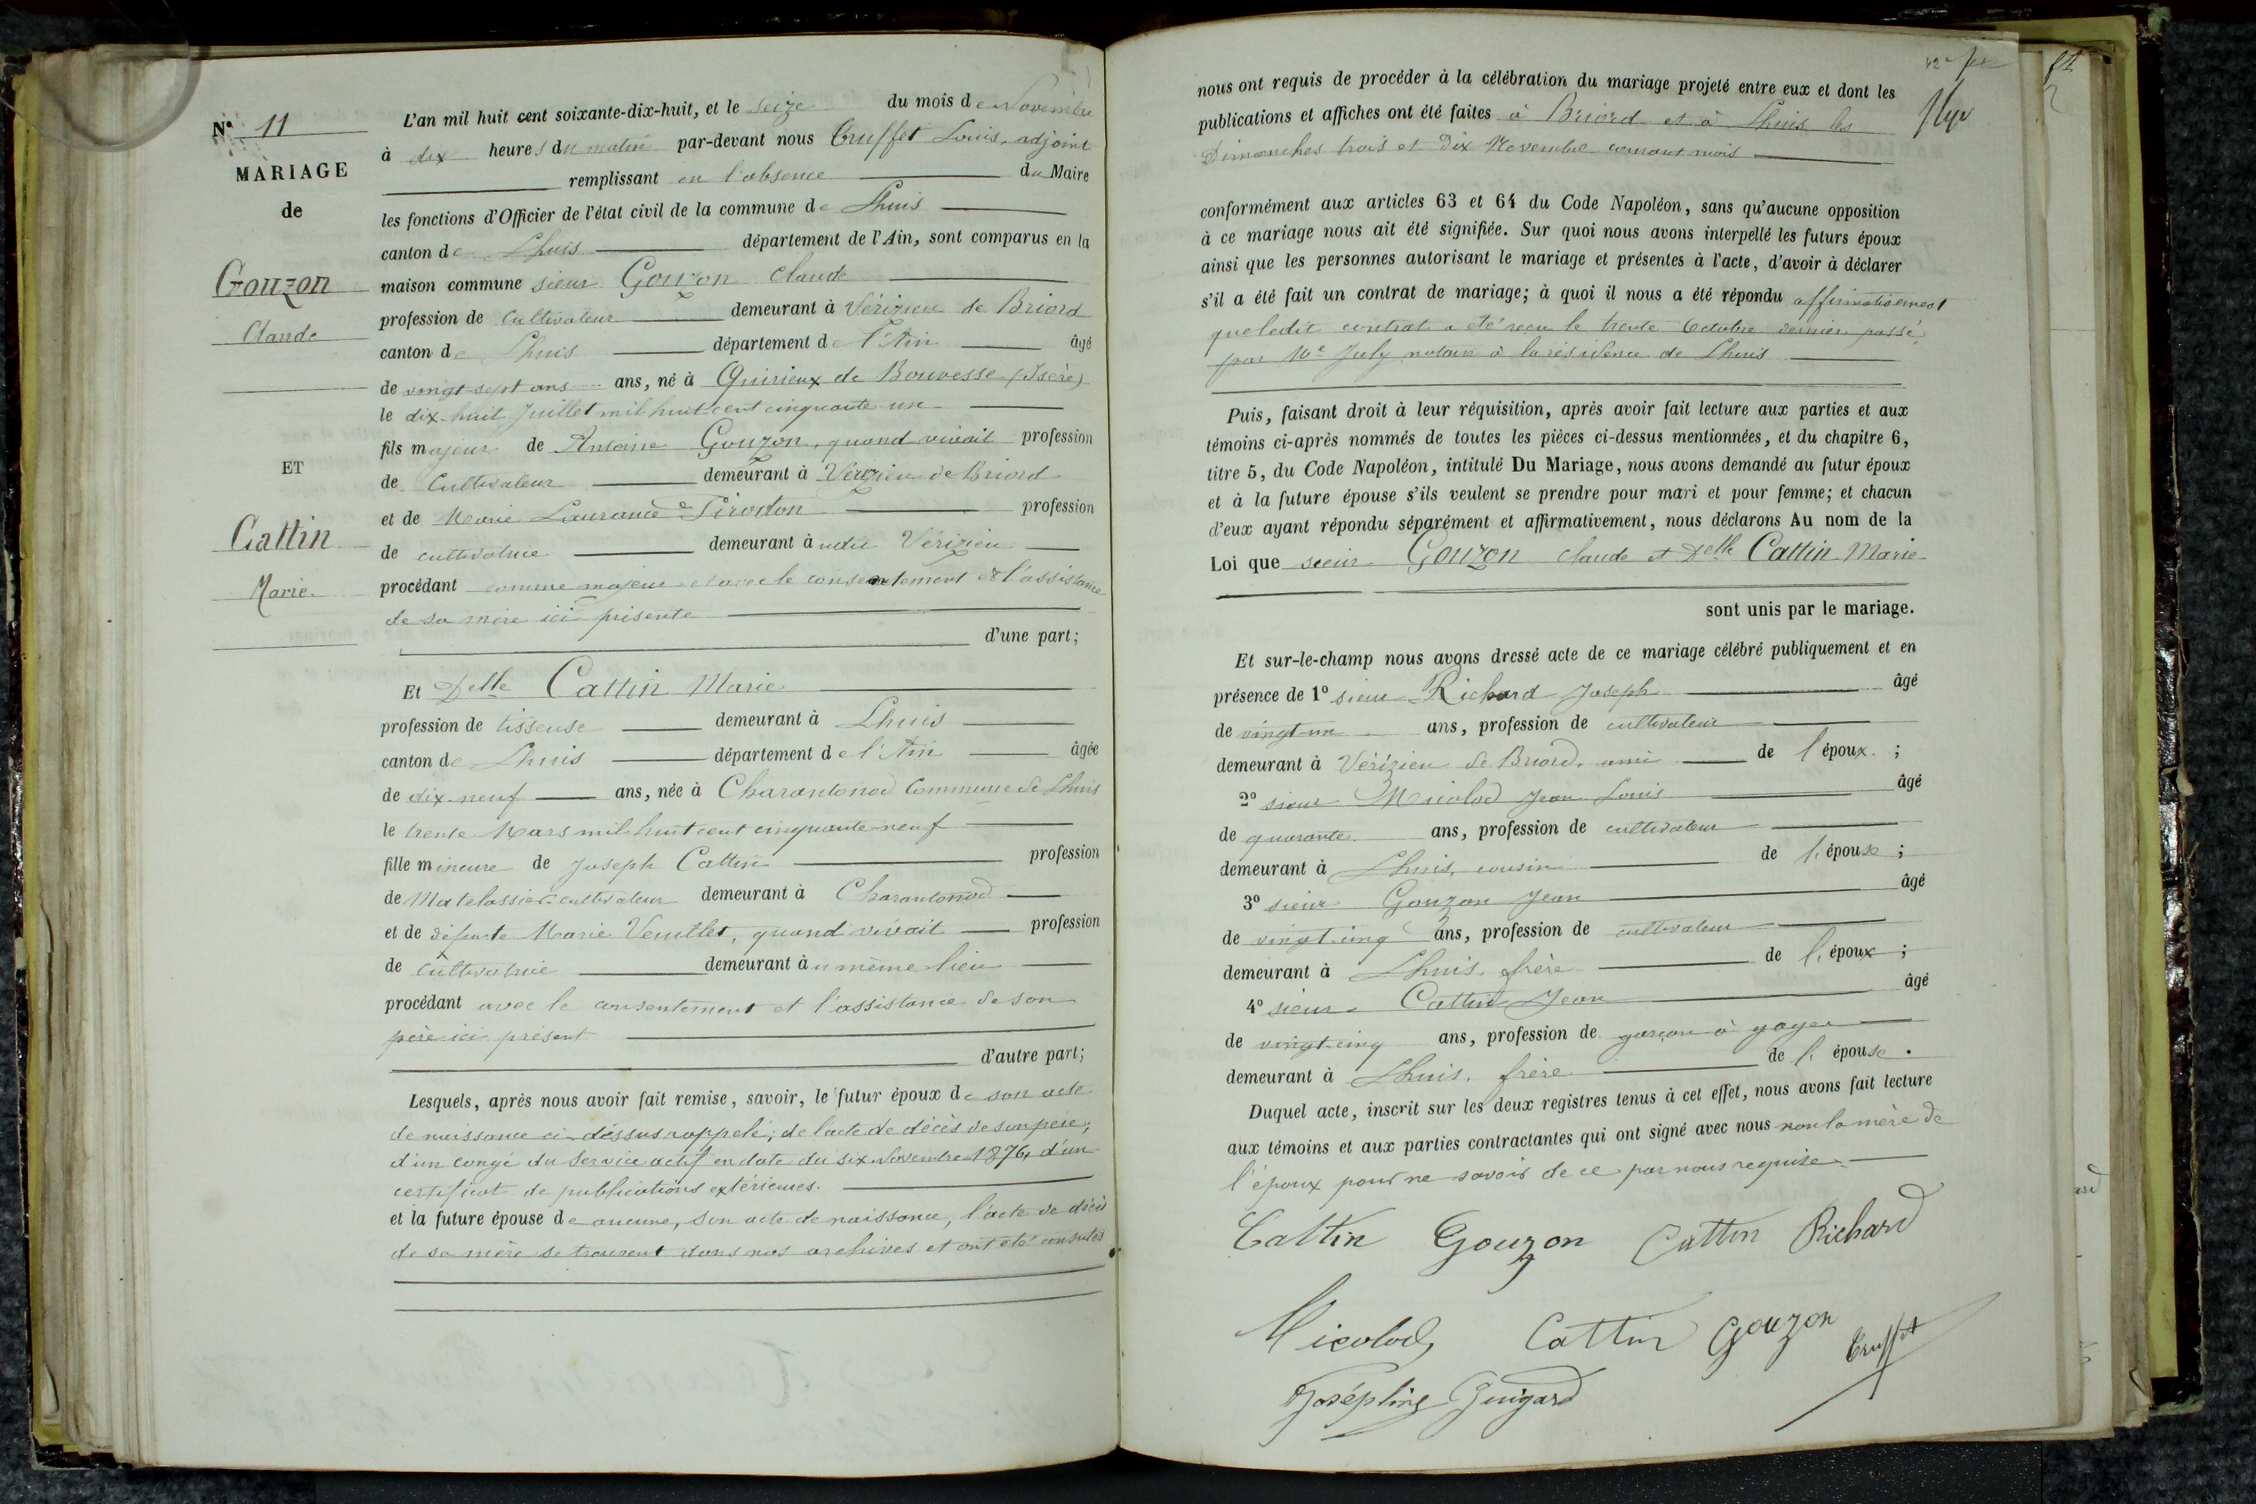 Nº 11
MARIAGE
de
Gouzon
Claude
ET
Cattin
Marie.
L'an mil huit cent soixante-dix-huit, et le seize du mois de Novembre
à dix heures du matin par-devant nous Truffet Louis, adjoint
remplissant en l'absence du Maire
les fonctions d'Officier de l'état civil de la commune de Lhuis
canton de Lhuis département de l'Ain, sont comparus en la
maison commune sieur Gouzon Claude
profession de Cultivateur demeurant à Vérizieu de Briord
canton de Lhuis département de l'Ain âgé
de vingt-sept ans ans, né à Quirieux de Bouvesse (Isère)
le dix-huit Juillet mil huit cent cinquante un
fils majeur de Antoine Gouzon, quand vivait profession
de Cultivateur demeurant à Vérizieu de Briord
et de Marie Laurance Tirodon profession
de cultivatrice demeurant à udit Vérizieu
procédant comme majeur et avec le consentement et l'assistance
de sa mère ici présente
d'une part;
Et Delle Cattin Marie
profession de tisseuse demeurant à Lhuis
canton de Lhuis département de l'Ain âgée
de dix-neuf ans, née à Charantonod Commune de Lhuis
le trente Mars mil huit cent cinquante-neuf
fille mineure de Joseph Cattin profession
de Matelassier-cultivateur demeurant à Charantonod
et de défunte Marie Venillet, quand vivait profession
de Cultivatrice demeurant à u même lieu
procédant avec le consentement et l'assistance de son
père ici présent
d'autre part;
Lesquels, après nous avoir fait remise, savoir, le futur époux de son acte
de naissance ci-dessus rappelé; de l'acte de décès de son père;
d'un congé du Service actif en date du six Novembre 1876, d'un
certificat de publications extérieures.
et la future épouse de aucune, son acte de naissance, l'acte de décès
de sa mère se trouvent dans nos archives et ont été consultés
nous ont requis de procéder à la célébration du mariage projeté entre eux et dont les
publications et affiches ont été faites à Briord et à Lhuis les
Dimanches trois et Dix Novembre courant mois
conformément aux articles 63 et 64 du Code Napoléon, sans qu'aucune opposition
à ce mariage nous ait été signifiée. Sur quoi nous avons interpellé les futurs époux
ainsi que les personnes autorisant le mariage et présentes à l'acte, d'avoir à déclarer
s'il a été fait un contrat de mariage; à quoi il nous a été répondu affirmativement
que ledit contrat a été reçu le trente Octobre dernier passé
par Me July notaire à la résidence de Lhuis
Puis, faisant droit à leur réquisition, après avoir fait lecture aux parties et aux
témoins ci-après nommés de toutes les pièces ci-dessus mentionnées, et du chapitre 6,
titre 5, du Code Napoléon, intitulé Du Mariage, nous avons demandé au futur époux
et à la future épouse s'ils veulent se prendre pour mari et pour femme; et chacun
d'eux ayant répondu séparément et affirmativement, nous déclarons Au nom de la
Loi que sieur Gouzon Claude et Delle Cattin Marie
sont unis par le mariage.
Et sur-le-champ nous avons dressé acte de ce mariage célébré publiquement et en
présence de 1º sieur Richard Joseph âgé
de vingt-un ans, profession de cultivateur
demeurant à Vérizieu de Briord, ami de l'époux ;
2º sieur Micolod Jean Louis âgé
de quarante ans, profession de cultivateur
demeurant à Lhuis, cousin de l'épouse ;
3º sieur Gouzon Jean âgé
de vingt-cinq ans, profession de cultivateur
demeurant à Lhuis, frère de l'époux ;
4º sieur Cattin Jean âgé
de vingt-cinq ans, profession de garçon à gages
demeurant à Lhuis, frère de l'épouse.
Duquel acte, inscrit sur les deux registres tenus à cet effet, nous avons fait lecture
aux témoins et aux parties contractantes qui ont signé avec nous non la mère de
l'époux pour ne savoir de ce par nous requise
Cattin Gouzon Cattin Richard
Micolod Cattin Gouzon Truffet
Joséphine Guigard